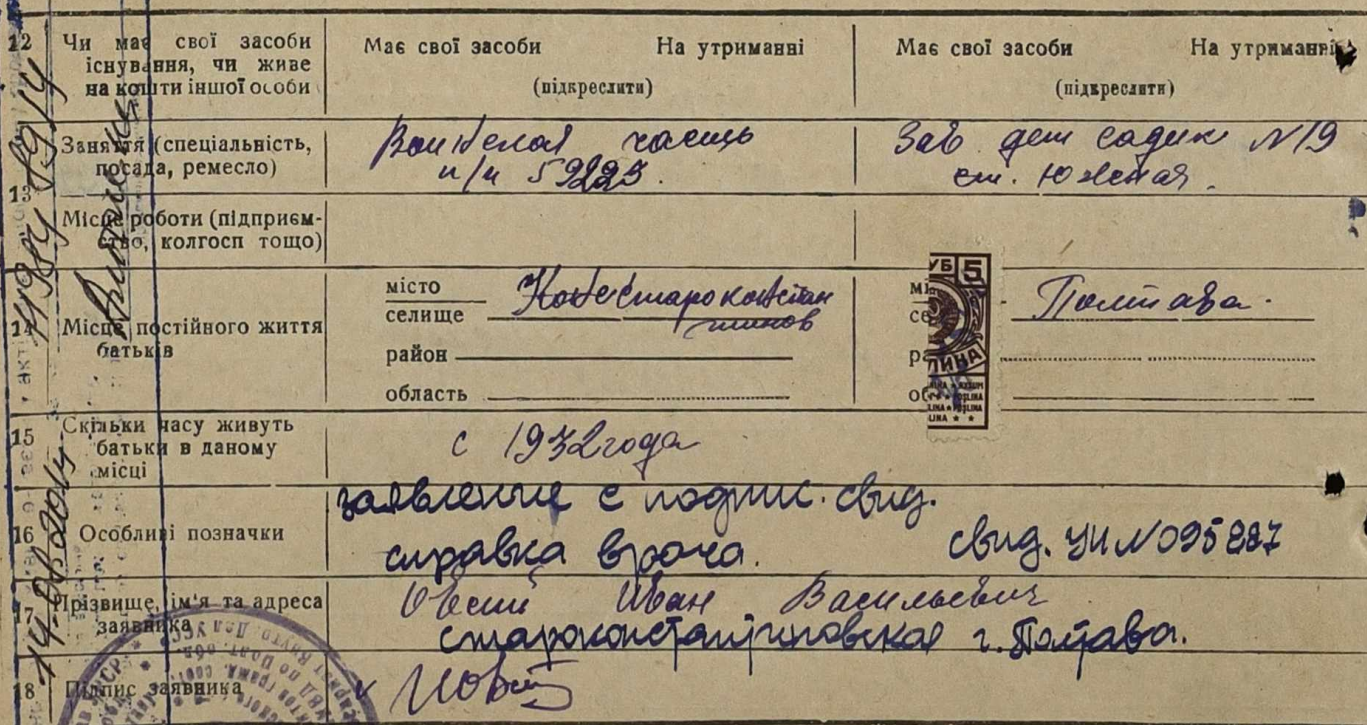 12 Чи має свої засоби існування, чи живе на кошти іншої особи
Має свої засоби На утриманні
(підкреслити)
Має свої засоби На утриманні
(підкреслити)
13 Заняття (спеціальність, посада, ремесло)
часть
п/я 59223.
Зав дет садик N19
ст. Южная.
Місце роботи (підприємство, колгосп тощо)
14 Місце постійного життя батьків
місто
селище
Старо констан
тинов
район
область
Полтава.
УБ 5
15 Скільки часу живуть батьки в даному місці
с 1932 года
16 Особливі позначки
заявление с подпис. свид.
справка врача. свид. УИ N095887
17 Прізвище, ім'я та адреса заявника
Овсий Иван Васильевич
староконстантиновская г. Полтава.
18 Підпис заявника